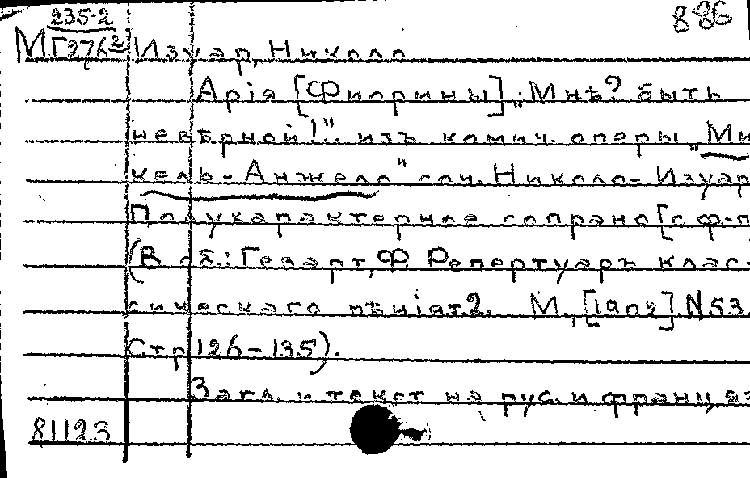 886
235-2
МГ276²
Изуар, Николо
Арія [Филорины] „Мнѣ? быть
невѣрной!".. изъ комич. оперы „Ми
кель-Анжело" соч. Николо-Изуар
Полухарактерное сопрано [с ф-п
(В сб.: Гевартъ, Ф. Репертуаръ клас-
сическаго пѣнія т 2. М., N 53.
Стр 126-135).
Загл. и текст на рус. и франц. яз
81123